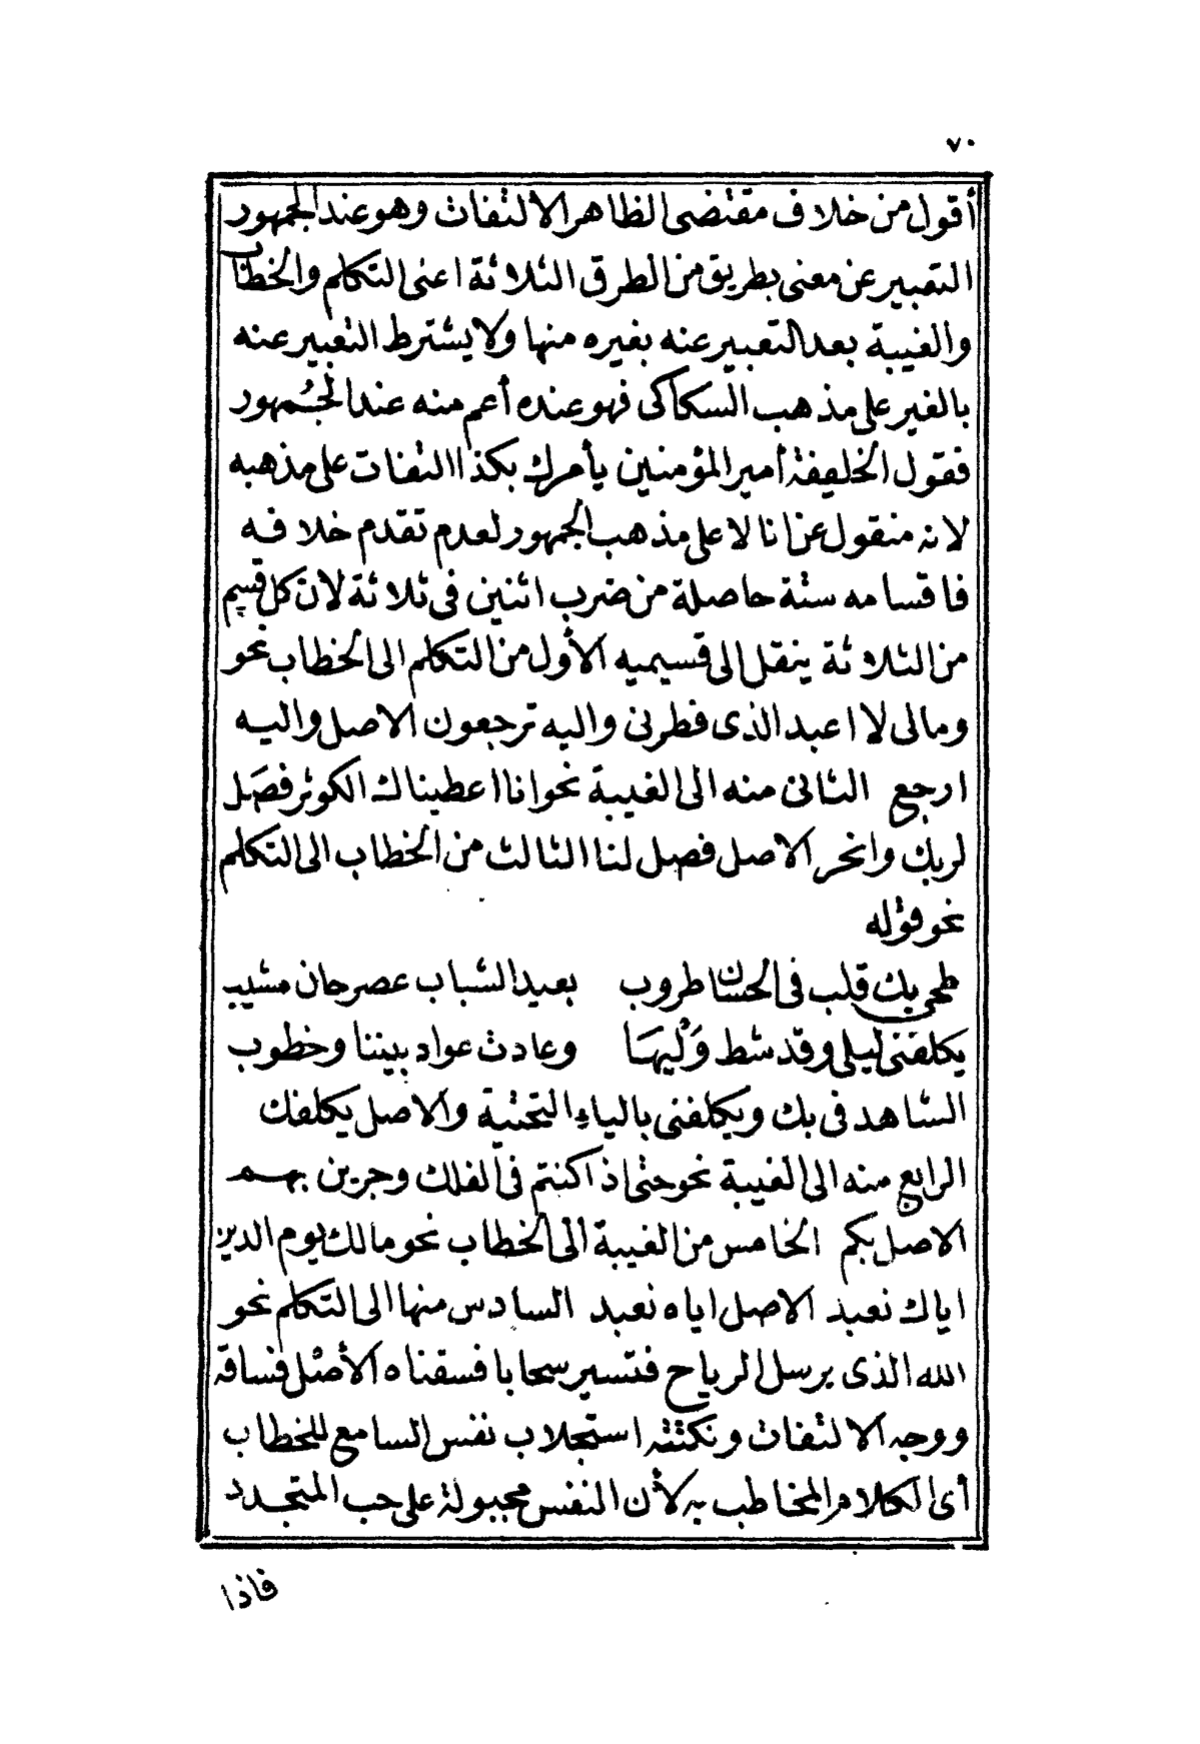 ٧٠
أقول من خلاف مقتضى الظاهر الالتفات وهو عند الجمهور
التعبير عن معنى بطريق من الطرق الثلاثة اعنى التكلم والخطاب
والغيبة بعد التعبير عنه بغيره منها ولا يشترط التعبير عنه
بالغير على مذهب السكاكى فهو عنده أعم منه عند الجُمهور
فقول الخليفة أمير المؤمنين يأمرك بكذا التفات على مذهبه
لانه منقول عن انا لا على مذهب الجمهور لعدم تقدم خلافه
فاقسامه ستة حاصلة من ضرب اثنين فى ثلاثة لان كل قسم
من الثلاثة ينقل الى قسيميه الأول من التكلم الى الخطاب نحو
ومالى لا اعبد الذى فطرنى واليه ترجعون الاصل واليه
ارجع الثانى منه الى الغيبة نحو انا اعطيناك الكوثر فصَل
لربك وانحر الاصل فصل لنا الثالث من الخطاب الى التكلم
نحو قوله
طحى بك قلب فى الحسان طروب بعيد الشباب عصر حان مشيب
يكلفنى ليلى وقد شط وَلْيهَا وعادت عواد بيننا وخطوب
الشاهد فى بك ويكلفنى بالياء التحتية والاصل يكلفك
الرابع منه الى الغيبة نحو حتى اذا كنتم فى الفلك وجرين بهم
الاصل بكم الخامس من الغيبة الى الخطاب نحو مالك يوم الدين
اياك نعبد الاصل اياه نعبد السادس منها الى التكلم نحو
الله الذى يرسل الرياح فتسير سحابا فسقناه الأصل فساقه
ووجه الالتفات ونكتته استجلاب نفس السامع للخطاب
أى الكلام المخاطب به لأن النفس مجبولة على حب المتجدد
فاذا